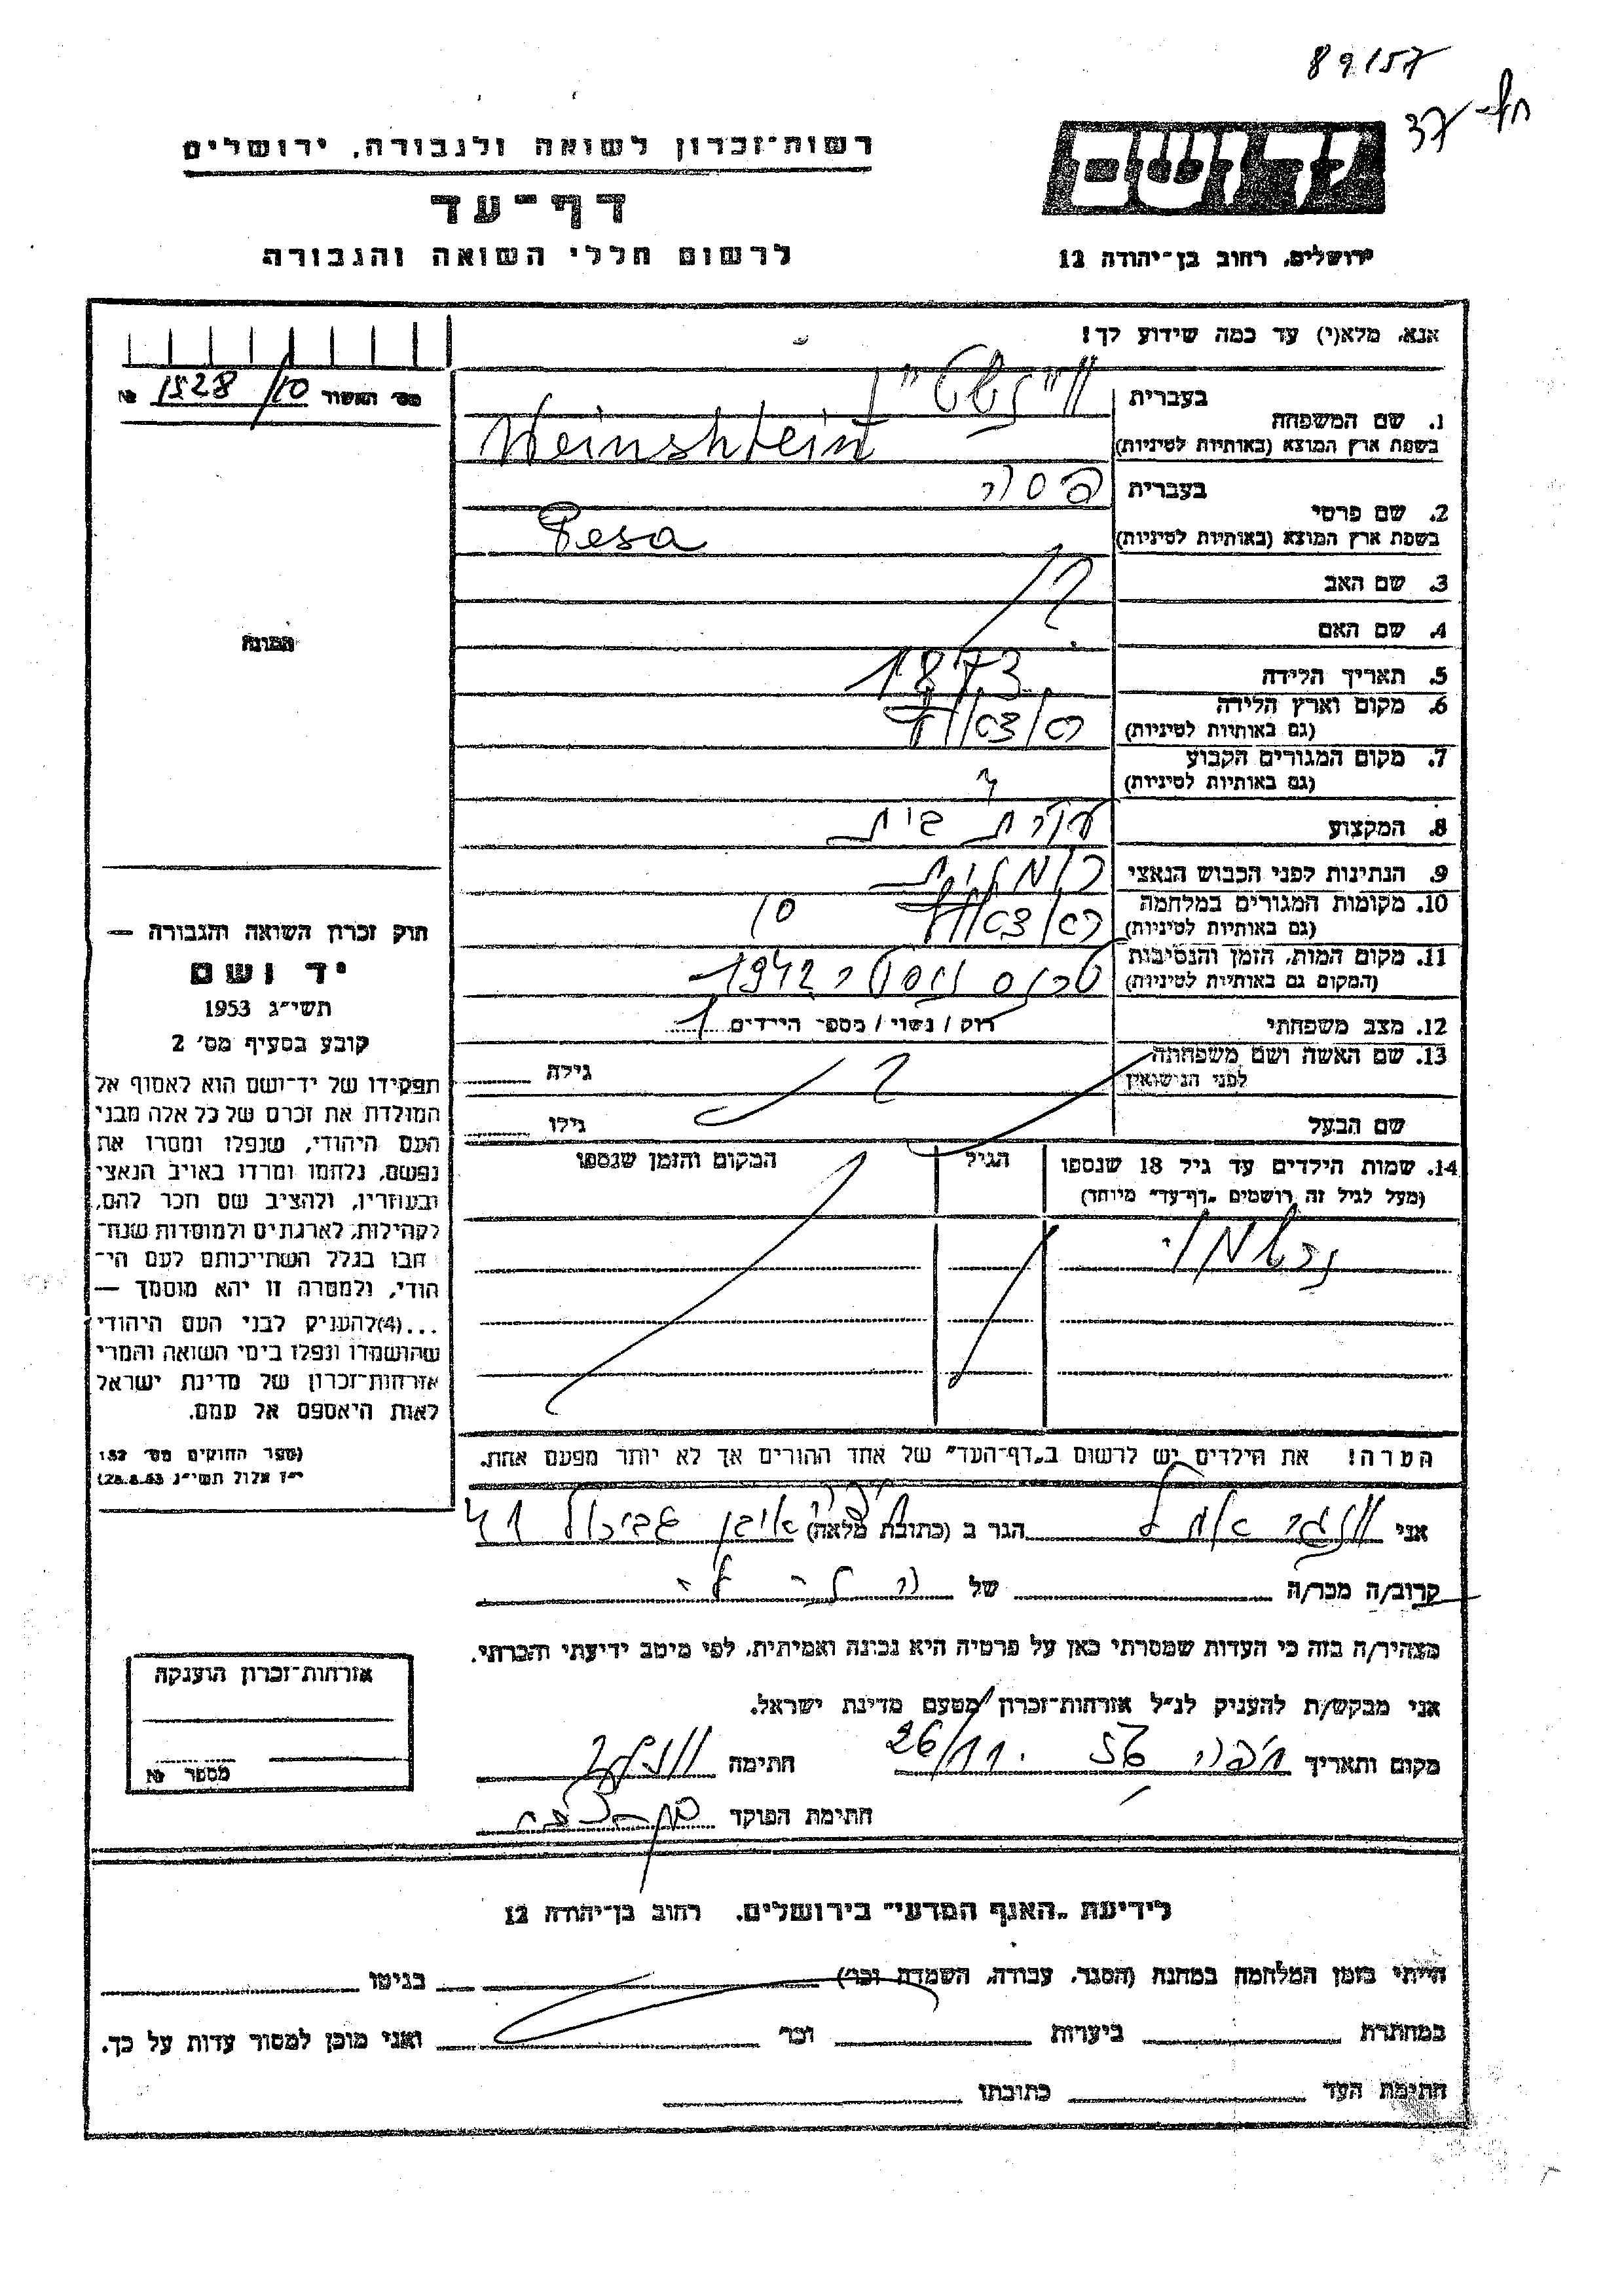 89/57
37
רשות־זכרון לשואה ולגבורה, ירושלים
דף־עד
לרשום חללי השואה והגבורה
ידושם
ירושלים, רחוב בן־יהודה 12
אנא, מלא(י) עד כמה שידוע לך!
מס׳ האשור 1528/10 №
1. שם המשפחה
בעברית ויינשטיין
בשפת ארץ המוצא (באותיות לטיניות) Weinshtein
2. שם פרטי
בעברית פסה
בשפת ארץ המוצא (באותיות לטיניות) Pesa
3. שם האב
4. שם האם
5. תאריך הלידה 1873
6. מקום וארץ הלידה
(גם באותיות לטיניות)
7. מקום המגורים הקבוע
(גם באותיות לטיניות)
8. המקצוע עקרת בית
9. הנתינות לפני הכבוש הנאצי
10. מקומות המגורים במלחמה
(גם באותיות לטיניות)
11. מקום המות, הזמן והנסיבות 1942
(המקום גם באותיות לטיניות)
12. מצב משפחתי רוק / נשוי / מספר הילדים 1
13. שם האשה ושם משפחתה
לפני הנישואין
גילה
שם הבעל
גילו
14. שמות הילדים עד גיל 18 שנספו
(מעל לגיל זה רושמים „דף־עד” מיוחד)
הגיל
המקום והזמן שנספו
הערה! את הילדים יש לרשום ב„דף־העד” של אחד ההורים אך לא יותר מפעם אחת.
התמונה
חוק זכרון השואה והגבורה —
יד ושם
תשי״ג 1953
קובע בסעיף מס׳ 2
תפקידו של יד־ושם הוא לאסוף אל
המולדת את זכרם של כל אלה מבני
העם היהודי, שנפלו ומסרו את
נפשם, נלחמו ומרדו באויב הנאצי
ובעוזריו, ולהציב שם וזכר להם,
לקהילות, לארגונים ולמוסדות שנח־
רבו בגלל השתייכותם לעם הי־
הודי, ולמטרה זו יהא מוסמך —
...(4)להעניק לבני העם היהודי
שהושמדו ונפלו בימי השואה והמרי
אזרחות־זכרון של מדינת ישראל
לאות היאספם אל עמם.
(ספר החוקים מס׳ 132
י״ז אלול תשי״ג 28.8.53)
אני הגר ב (כתובת מלאה) 41
קרוב/ה מכר/ה של
מצהיר/ה בזה כי העדות שמסרתי כאן על פרטיה היא נכונה ואמיתית, לפי מיטב ידיעתי והכרתי.
אני מבקש/ת להעניק לנ״ל אזרחות־זכרון מטעם מדינת ישראל.
מקום ותאריך חיפה 26/11 56 חתימה
חתימת הפוקד
אזרחות־זכרון הוענקה
מספר №
לידיעת „האגף המדעי” בירושלים. רחוב בן־יהודה 12
הייתי בזמן המלחמה במחנה (הסגר, עבודה, השמדה וכו׳) בגיטו
במחתרת ביערות וכו׳ ואני מוכן למסור עדות על כך.
חתימת העד כתובתו